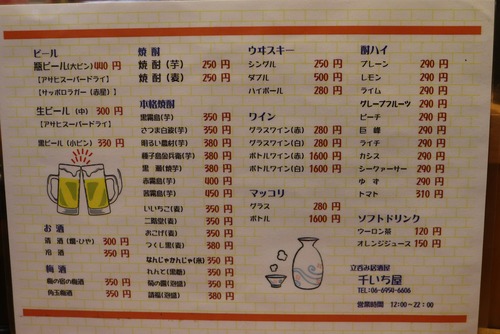 ビール
瓶ビール(大ビン) 440 円
【アサヒスーパードライ】
【サッポロラガー(赤星)】
生ビール (中) 300 円
【アサヒスーパードライ】
黒ビール (小ビン) 330 円
お 酒
清 酒 (燗・ひや) 300 円
冷 酒 350 円
梅 酒
梅の宿の梅酒 350 円
角玉梅酒 350 円
焼 酎
焼 酎 (芋) 250 円
焼 酎 (麦) 250 円
本格焼酎
黒霧島(芋) 350 円
さつま白波(芋) 350 円
明るい農村(芋) 380 円
種子島金兵衛(芋) 380 円
黒 瀬(焼芋) 380 円
赤霧島(芋) 400 円
茜霧島(芋) 450 円
いいちこ(麦) 350 円
二階堂(麦) 350 円
おこげ(麦) 350 円
つくし黒(麦) 380 円
なんじゃかんじゃ(米) 350 円
れんと(黒糖) 350 円
菊の露(泡盛) 380 円
請福(泡盛) 380 円
ウヰスキー
シングル 250 円
ダブル 500 円
ハイボール 280 円
ワイン
グラスワイン(赤) 280 円
グラスワイン(白) 280 円
ボトルワイン(赤) 1600 円
ボトルワイン(白) 1600 円
マッコリ
グラス 280 円
ボトル 1600 円
酎ハイ
プレーン 290 円
レモン 290 円
ライム 290 円
グレープフルーツ 290 円
ピーチ 290 円
巨 峰 290 円
ライチ 290 円
カシス 290 円
シークァーサー 290 円
ゆ ず 290 円
トマト 310 円
ソフトドリンク
ウーロン茶 120 円
オレンジジュース 150 円
立呑み居酒屋
千いち屋
TEL:06-6954-6606
営業時間 12:00~22:00